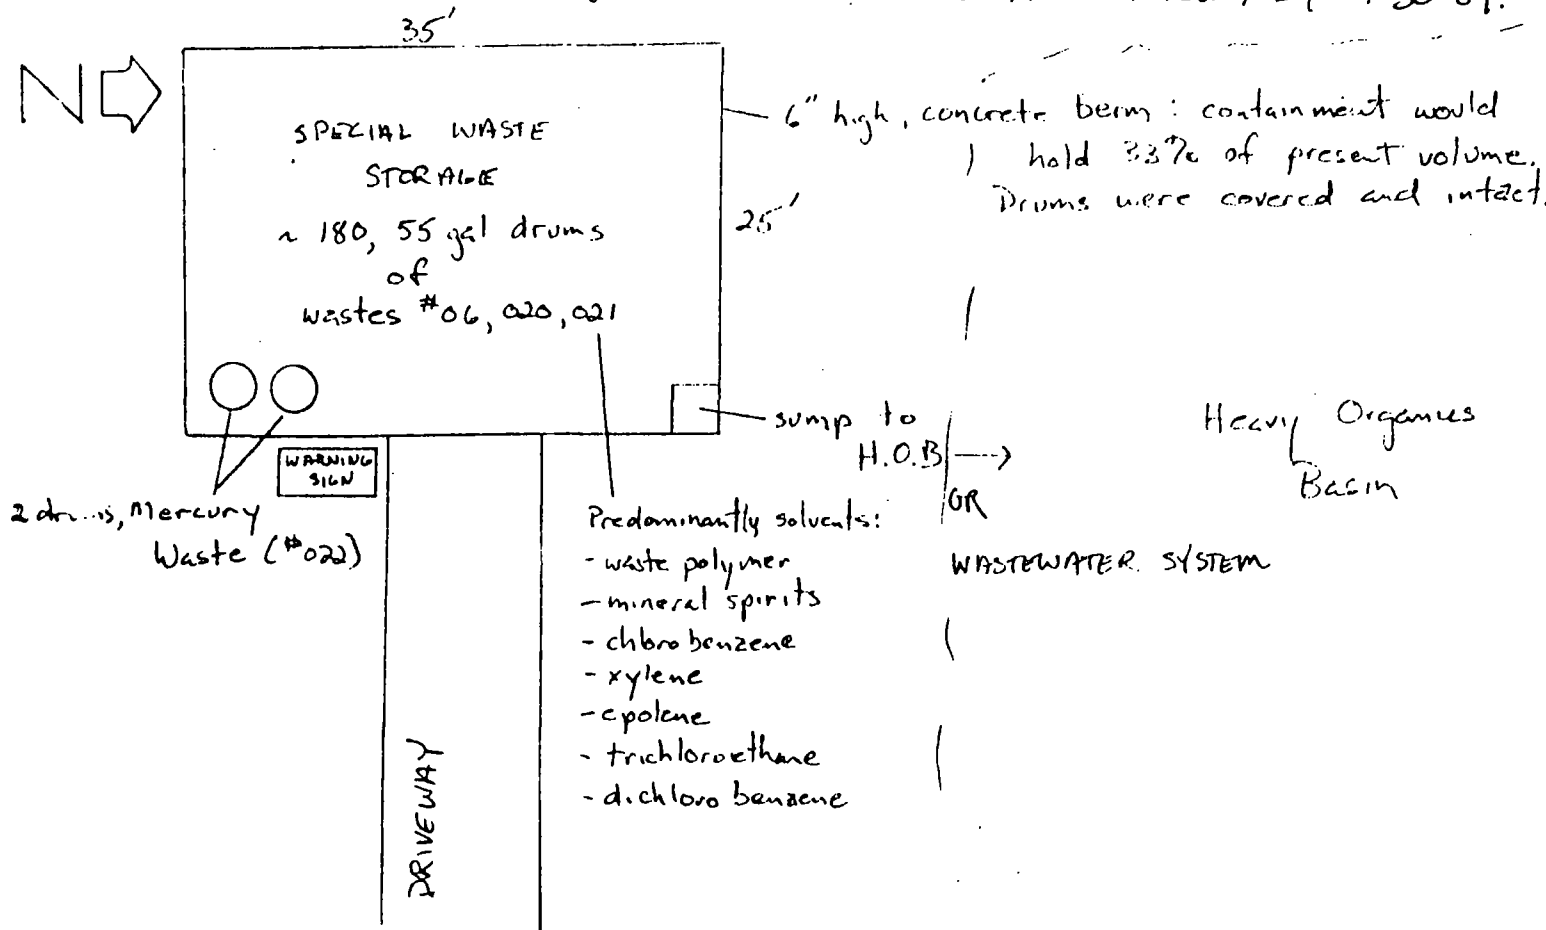 35'
N
SPECIAL WASTE
STORAGE
~ 180, 55 gal drums
of
wastes #06, 020, 021
6" high, concrete berm : containment would
hold 33% of present volume.
Drums were covered and intact.
25'
sump to
H.O.B
OR
WASTEWATER SYSTEM
Heavy Organics
Basin
WARNING
SIGN
2 drums, Mercury
Waste (#022)
Predominantly solvents:
- waste polymer
- mineral spirits
- chlorobenzene
- xylene
- epolene
- trichloroethane
- dichlorobenzene
DRIVEWAY